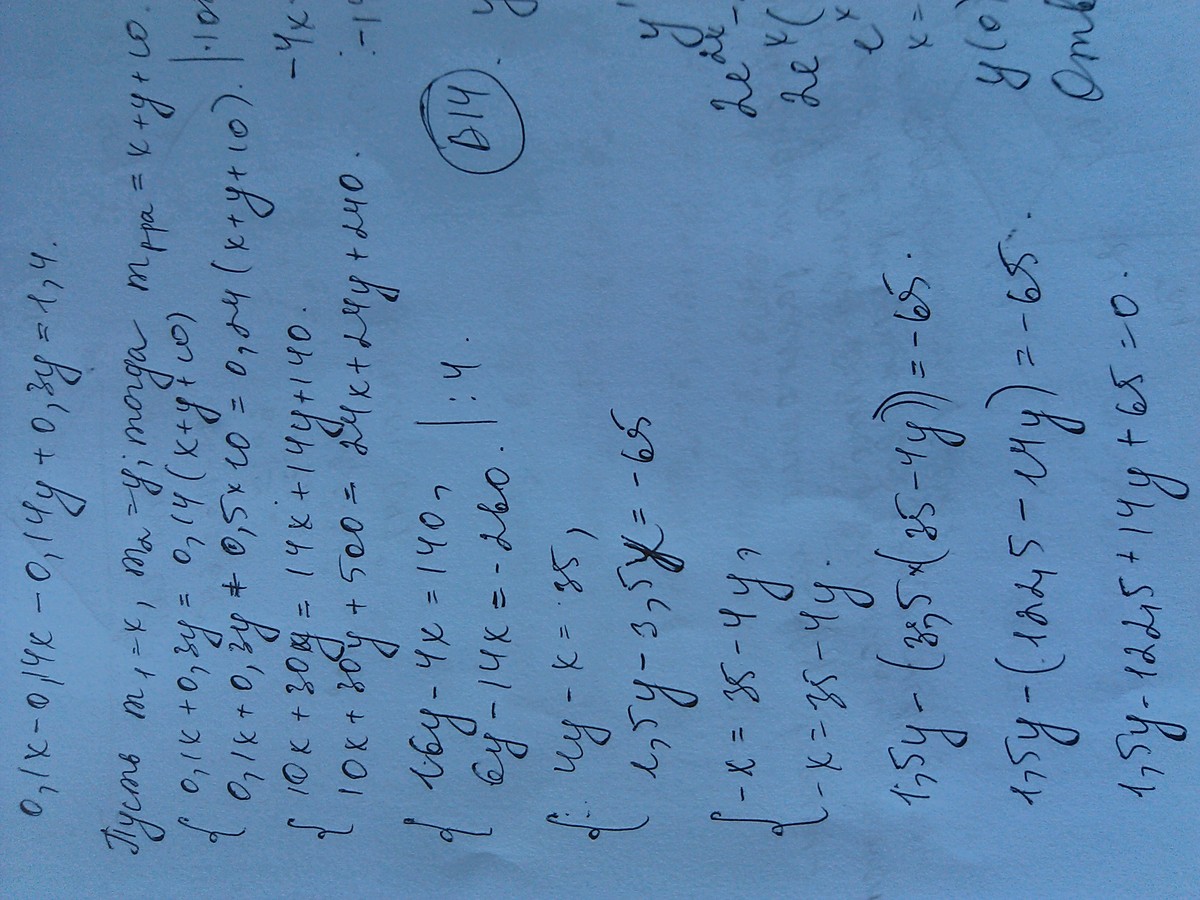 0,1x-0,14x-0,14y+0,3y=1,4.
Пусть m₁=x, m₂=y, тогда mрра=x+y+10.
{ 0,1x+0,3y=0,14(x+y+10) |·10
0,1x+0,3y+0,5×10=0,24(x+y+10).
{ 10x+30y=14x+14y+140.
10x+30y+500=24x+24y+240.
-4x
:-1
{ 16y-4x=140,
6y-14x=-260. |:4
B14
{ 4y-x=35,
1,5y-3,5x=-65
{ -x=35-4y,
-x=35-4y.
1,5y-(3,5×(35-4y))=-65.
1,5y-(122,5-14y)=-65.
1,5y-122,5+14y+65=0.
y
2e²ˣ-
2eˣ(
eˣ
x=
y(0)
Отв